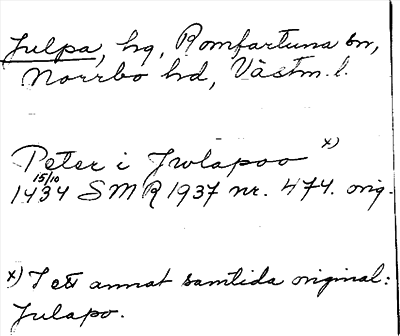 Julpa, hg, Romfartuna sn,
Norrbo hd, Västm. l.
Peter i Jwlapoo x)
15/10
1434 SMR 1937 nr. 474. orig.
x) I ett annat samtida original:
Julapo.